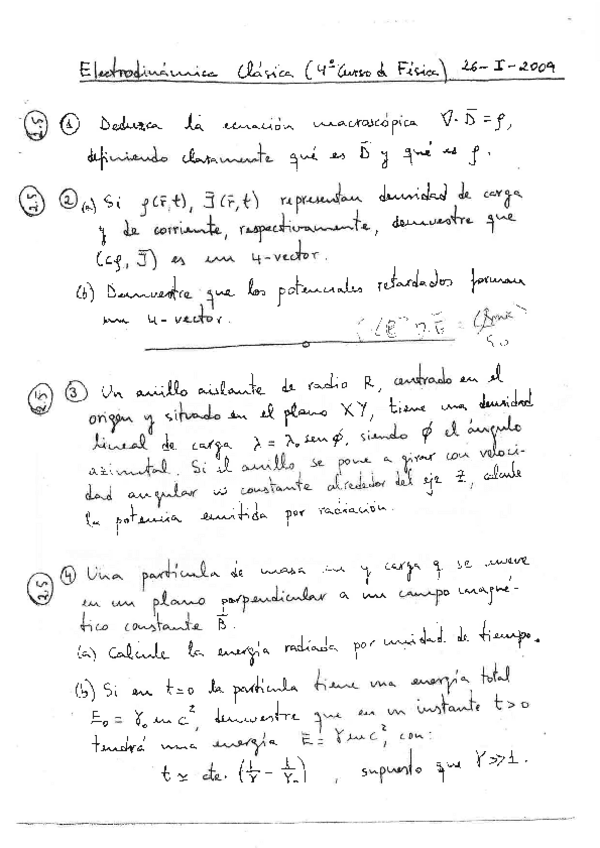 Electrodinámica Clásica (4º Curso de Física) 26-I-2009
2.5 ① Deduzca la ecuación macroscópica ∇·D̄ = ρ,
definiendo claramente qué es D̄ y qué es ρ.
2.5 ② (a) Si ρ(r̄,t), J̄(r̄,t) representan densidad de carga
y de corriente, respectivamente, demuestre que
(cρ, J̄) es un 4-vector.
(b) Demuestre que los potenciales retardados forman
un 4-vector.
2.5 ③ Un anillo aislante de radio R, centrado en el
origen y situado en el plano XY, tiene una densidad
lineal de carga λ = λ₀ sen ϕ, siendo ϕ el ángulo
azimutal. Si el anillo se pone a girar con veloci-
dad angular ω constante alrededor del eje Z, calcule
la potencia emitida por radiación.
2.5 ④ Una partícula de masa m y carga q se mueve
en un plano perpendicular a un campo magné-
tico constante B̄.
(a) Calcule la energía radiada por unidad de tiempo.
(b) Si en t=0 la partícula tiene una energía total
E₀ = γ₀ m c², demuestre que en un instante t>0
tendrá una energía E = γ m c², con:
t ≃ cte. (1/γ − 1/γ₀) , supuesto que γ≫1.